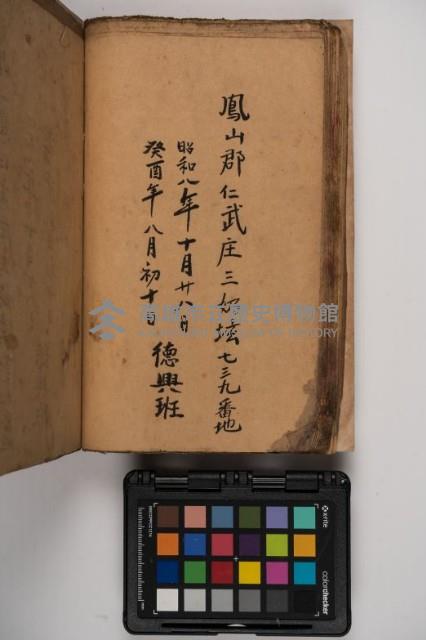 鳳山郡仁武庄三奶坛七三九番地
昭和八年十月廿八日
癸酉年八月初十日
德興班
高雄市立歷史博物館
KAOHSIUNG MUSEUM OF HISTORY
x-rite
colorchecker